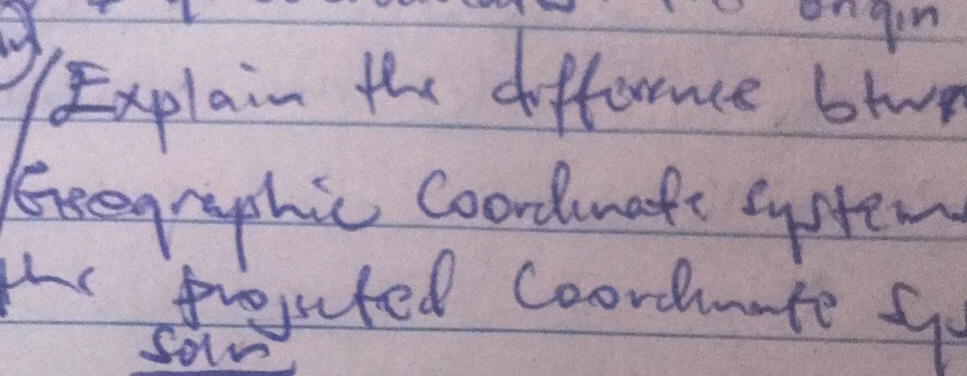 origin
Explain the difference btwn
Geographic Coordinate system
the projected Coordinate sys
Soln